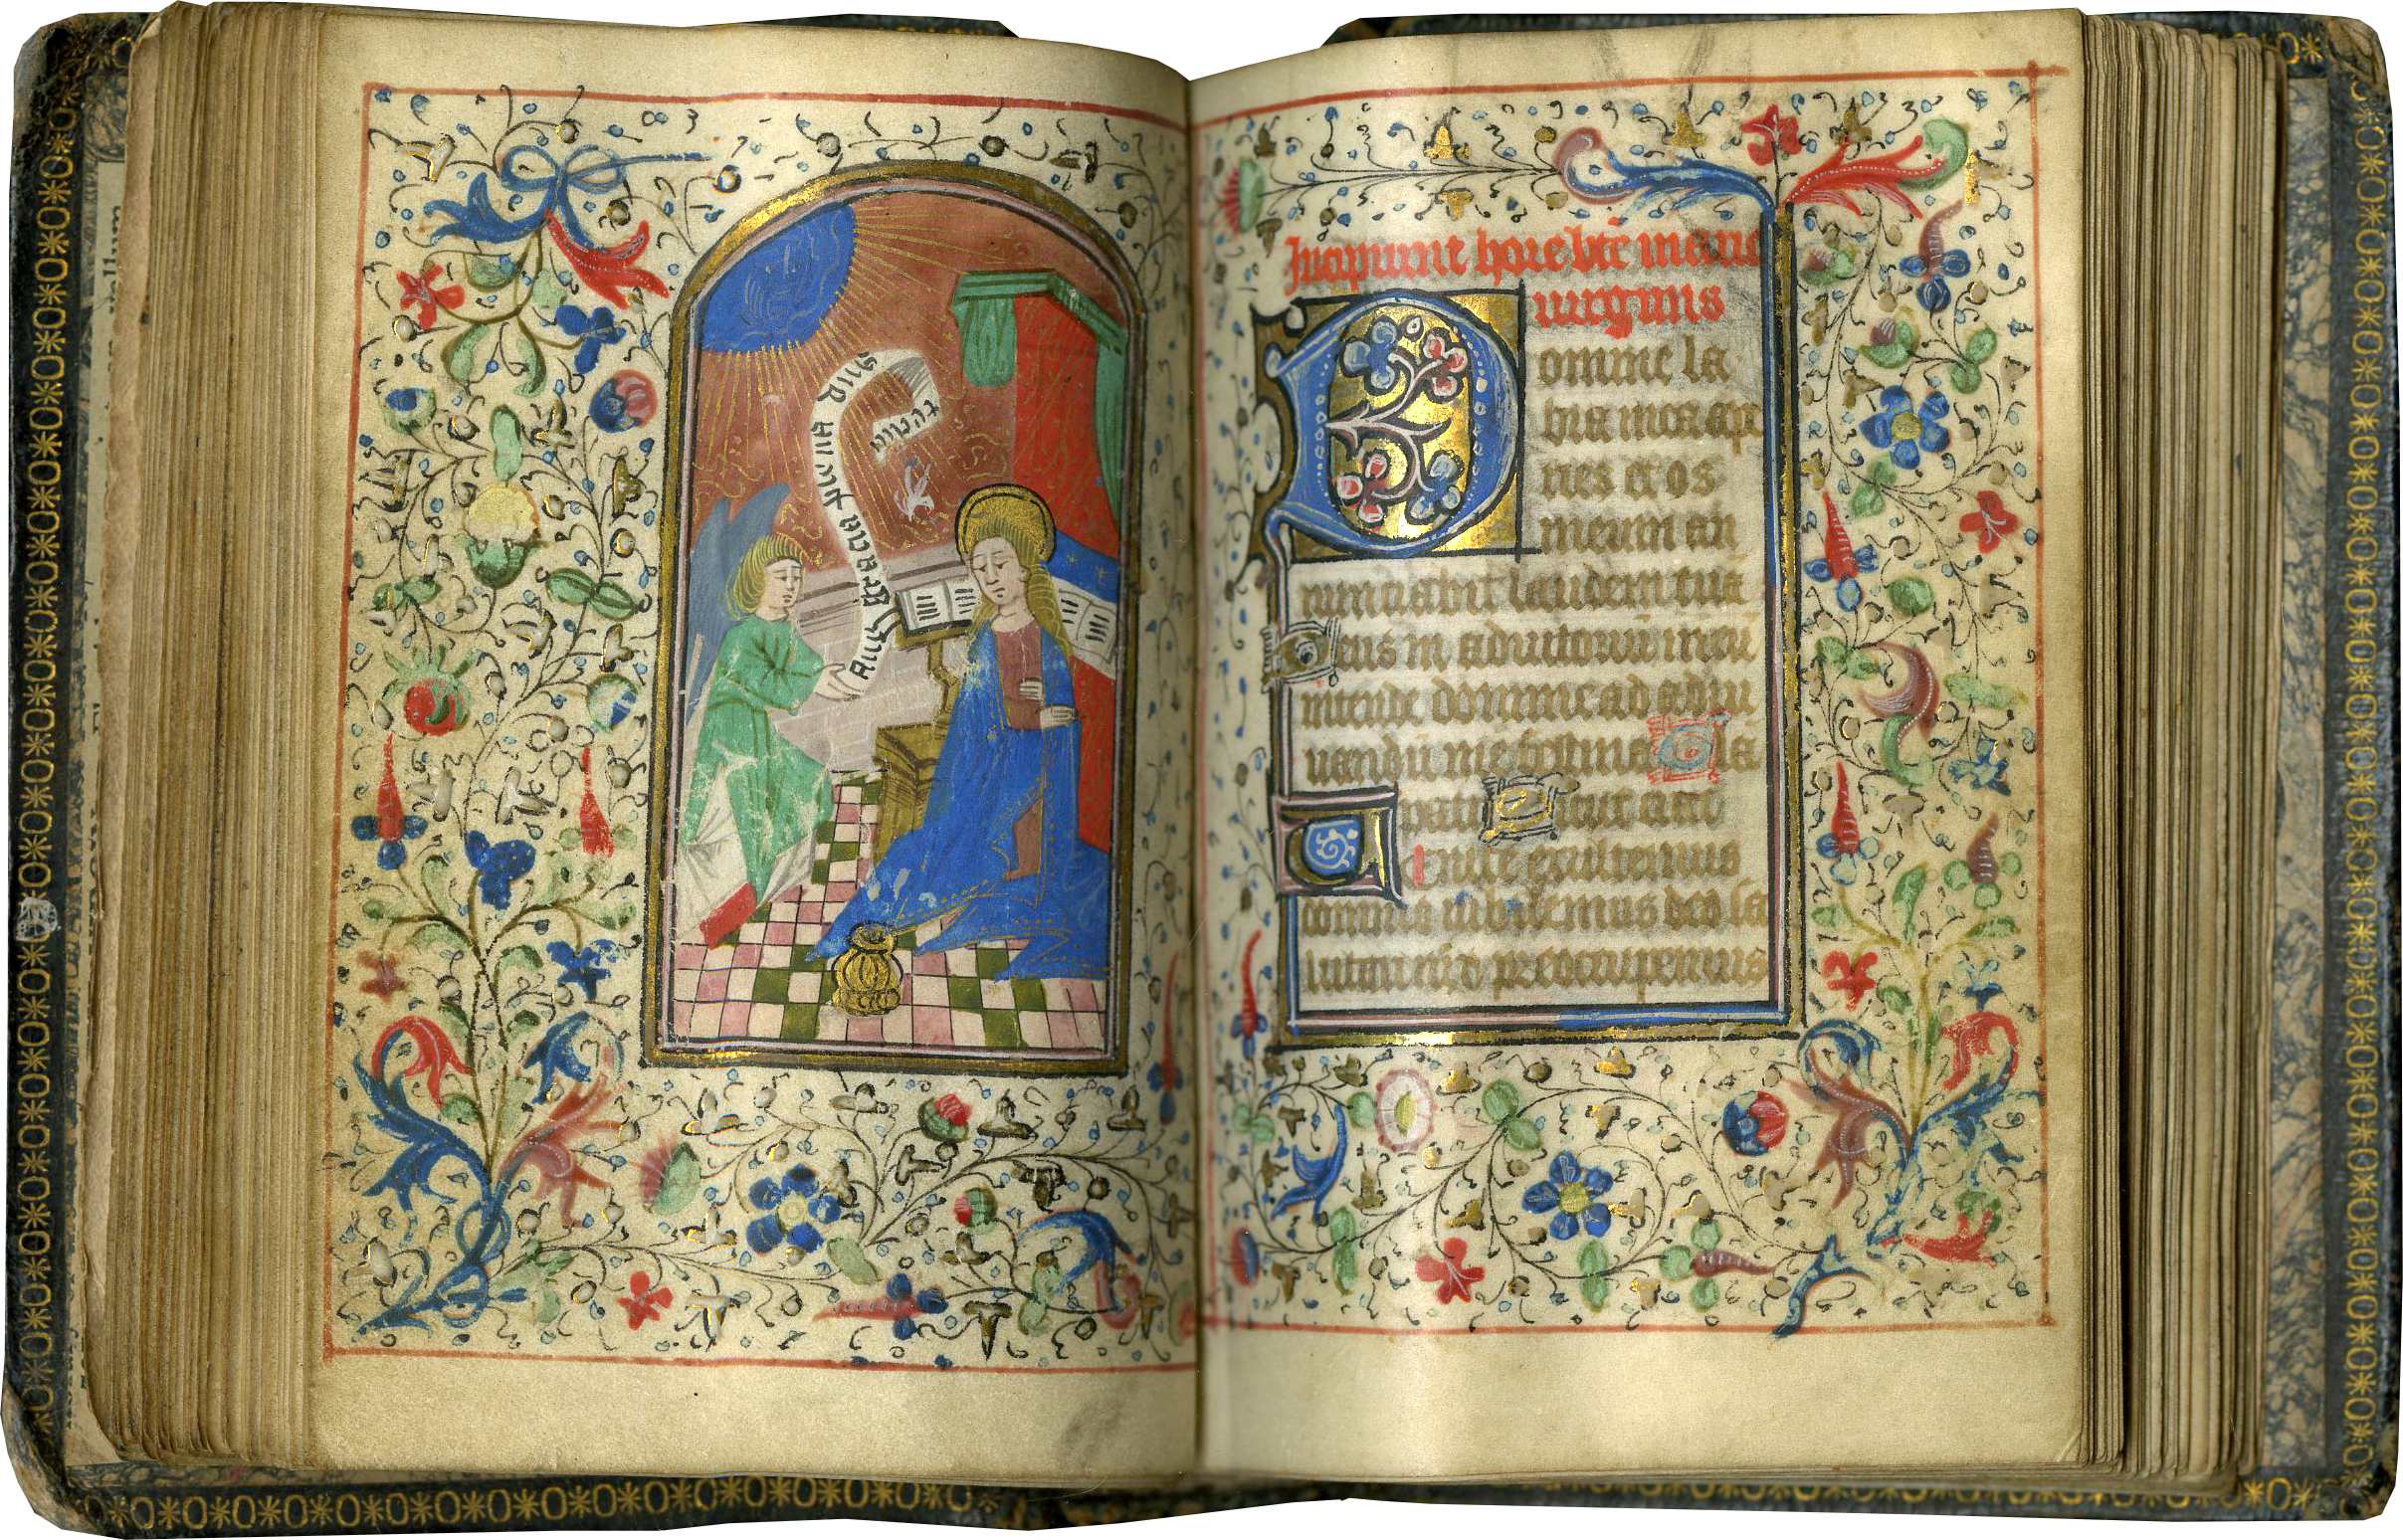 Aue gracia plena dns
tecum
Incipiunt hore bte marie
uirginis
Domine la
bia mea ape
ries et os
meum an
nunciabit laudem tuā
Deus in adiutoriū meū
intende Domine ad adiu
uandū me festina Gla
patri Sicut erat
Uenite exultemus
domino iubilemus deo sa
lutari